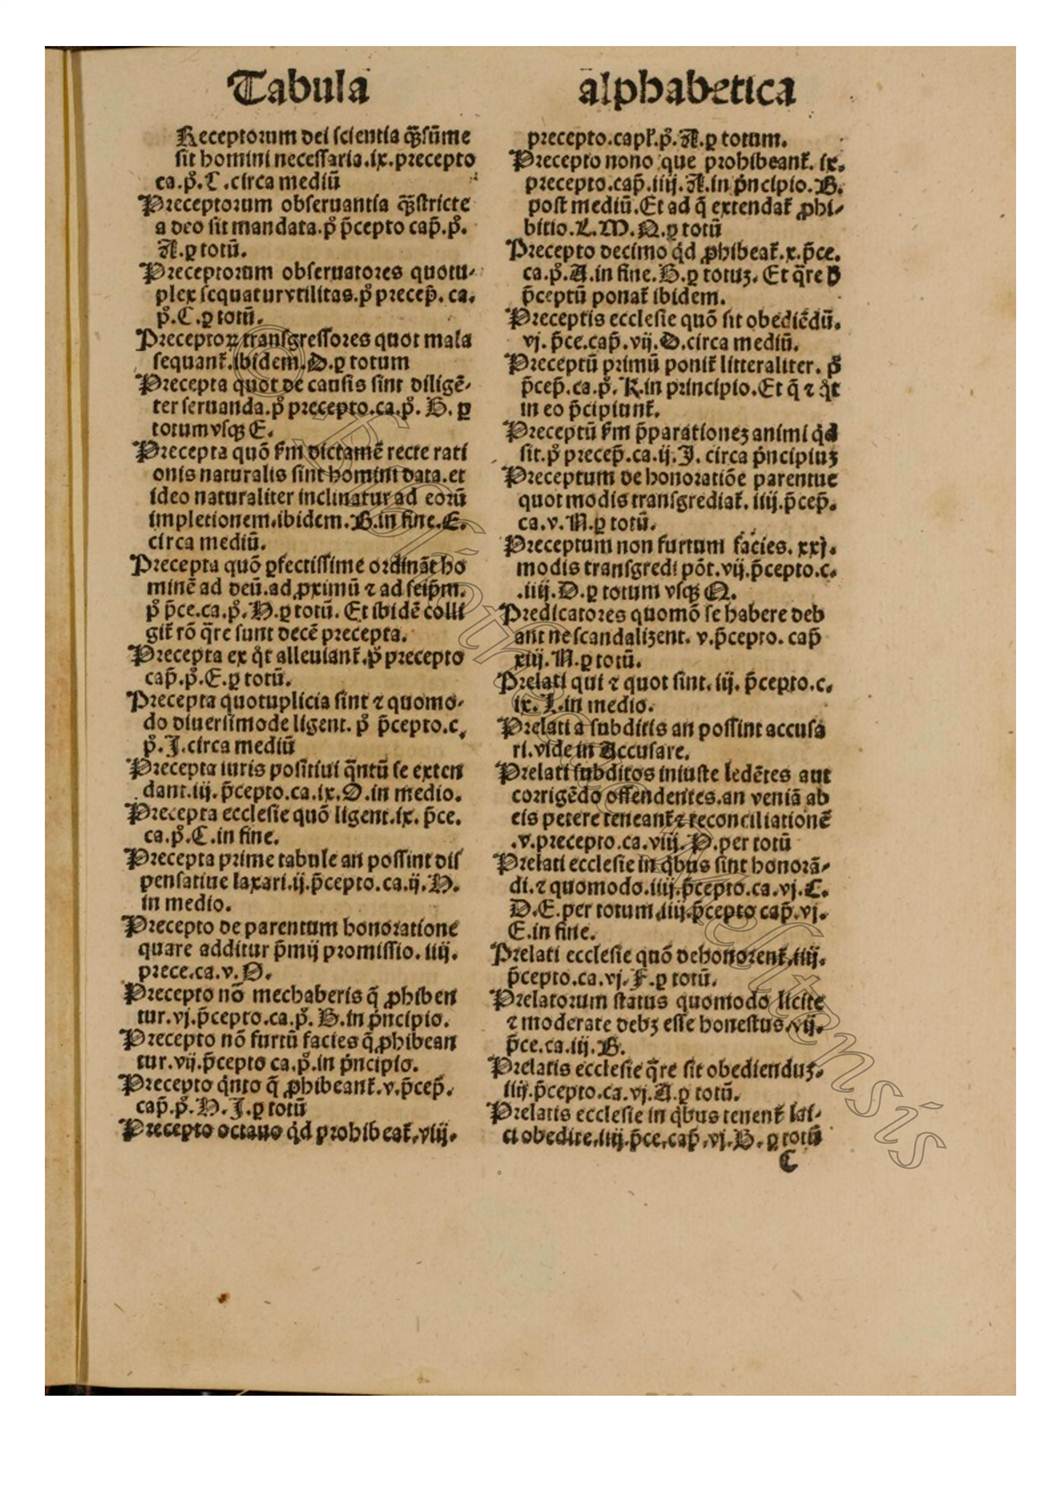 Tabula alphabetica
Receptorum dei scientia q̄ꝫsūme
sit homini necessaria.ix.precepto
ca.pͦ.C.circa mediū
Preceptorum obseruantia q̄ꝫstricte
a deo sit mandata.pͦ p̄cepto cap̄.pͦ.
A.ꝑ totū.
Preceptorum obseruatores quotu-
plex sequatur vtilitas.pͦ precep̄. ca.
pͦ.C.ꝑ totū.
Preceptoꝝ transgressores quot mala
sequant᷑.ibidem.D.ꝑ totum
Precepta quot de causis sint diligē-
ter seruanda.pͦ precepto.ca.pͦ. B. ꝑ
totum vsqꝫ E.
Precepta quō ẜm dictamē recte rati
onis naturalis sint homini data.et
ideo naturaliter inclinatur ad eorū
impletionem.ibidem.B.in fine.E.
circa mediū.
Precepta quō ꝑfectissime ordināt ho
minē ad deū.ad ꝓximū ⁊ ad seip̄m.
pͦ p̄ce.ca.pͦ.H.ꝑ totū. Et ibidē colli
git᷑ rō q̄re sunt decē precepta.
Precepta ex qͥt alleuiant᷑.pͦ precepto
cap̄.pͦ.E.ꝑ totū.
Precepta quotuplicia sint ⁊ quomo-
do diuersimode ligent. pͦ p̄cepto.c.
pͦ.I.circa mediū
Precepta iuris positiui q̄ntū se exten
dant.iij.p̄cepto.ca.ix.D.in medio.
Precepta ecclesie quō ligent.ix. p̄ce.
ca.pͦ.C.in fine.
Precepta prime tabule an possint dis
pensatiue laxari.ij.p̄cepto.ca.ij.H.
in medio.
Precepto de parentum honoratione
quare additur p̄mij promissio. iiij.
prece.ca.v.O.
Precepto nō mechaberis q̄ ꝓhiben
tur.vj.p̄cepto.ca.pͦ. B.in pͥncipio.
Precepto nō furtū facies q̄ ꝓhibean
tur.vij.p̄cepto ca.pͦ.in pͥncipio.
Precepto qͥnto q̄ ꝓhibeant᷑.v.p̄cep̄.
cap̄.pͦ.H.I.ꝑ totū
Precepto octauo qͥd prohibeat᷑.viij.
precepto.capl᷑.pͦ.A.ꝑ totum.
Precepto nono que prohibeant᷑. ix.
precepto.cap̄.iiij.A.in pͥncipio.B.
post mediū.Et ad q̄ extendat᷑ ꝓhi-
bitio.L.M.N.ꝑ totū
Precepto decimo qͥd ꝓhibeat᷑.x.p̄ce.
ca.pͦ.A.in fine.B.ꝑ totuꝫ. Et q̄re
p̄ceptū ponat᷑ ibidem.
Preceptis ecclesie quō sit obediēdū.
vj. p̄ce.cap̄.vij.D.circa mediū.
Preceptū primū ponit᷑ litteraliter. pͦ
p̄cep̄.ca.pͦ. K.in principio.Et q̄ ⁊ qͥt
in eo p̄cipiunt᷑.
Preceptū ẜm p̄parationeꝫ animi qͥd
sit.pͦ precep̄.ca.ij.I. circa pͥncipiuꝫ
Preceptum de honoratiōe parentue
quot modis transgrediat᷑. iiij.p̄cep̄.
ca.v.M.ꝑ totū.
Preceptum non furtum facies. xxj.
modis transgredi pōt.vij.p̄cepto.c.
.iiij.D.ꝑ totum vsqꝫ Q.
Predicatores quomō se habere deb
ant ne scandalizent. v.p̄cepto. cap̄
xiij.M.ꝑ totū.
Prelati qui ⁊ quot sint. iij. p̄cepto.c.
ix.I.in medio.
Prelati a subditis an possint accusa
ri.vide in Accusare.
Prelati subditos iniuste ledētes aut
corrigēdo offendentes.an veniā ab
eis petere teneant᷑ ⁊ reconciliationē
.v.precepto.ca.viij.P.per totū
Prelati ecclesie in qͥbus sint honorā-
di.⁊ quomodo.iiij.p̄cepto.ca.vj.C.
D.E.per totum.iiij.p̄cepto cap̄.vj.
E.in fine.
Prelati ecclesie quō dehonorent᷑.iiij.
p̄cepto.ca.vj.F.ꝑ totū.
Prelatorum status quomodo licite
⁊ moderate debꝫ esse honestus.vij.
p̄ce.ca.iij.B.
Prelatis ecclesie q̄re sit obedienduꝫ.
iiij.p̄cepto.ca.vj.A.ꝑ totū.
Prelatis ecclesie in qͥbus tenent᷑ lai-
ci obedire.iiij.p̄ce.cap̄.vj.B.ꝑ totū
C